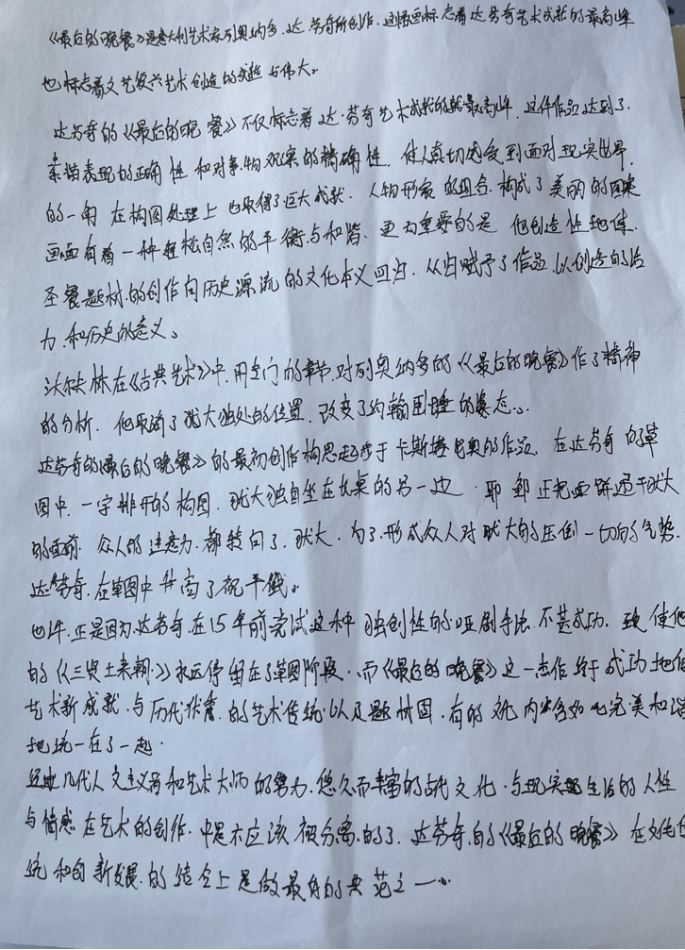 《最后的晚餐》是意大利艺术家列奥纳多.达.芬奇所创作.这幅画标志着达芬奇艺术成就的最高峰
也标志着文艺复兴艺术创造的成与伟大。
达芬奇的《最后的晚餐》不仅标志着达.芬奇艺术成就的最高峰.这件作品达到了.
素描表现的正确性和对事物观察的精确性.使人真切感受到面对现实世界.
的一角 在构图处理上 也取得了巨大成就.人物形象的组合.构成了美丽的图案
画面有着一种轻松自然的平衡与和谐.更为重要的是 他创造性地使.
圣餐题材的创作向历史源流的文化本义回归.从归赋予了作品以创造的活
力.和历史的意义。
沃尔夫林在《古典艺术》中.用专门的章节.对列奥纳多的《最后的晚餐》作了精神
的分析.他取消了犹大独处的位置.改变了约翰困睡的姿态。
达芬奇的《最后的晚餐》的最初创作构思起步于卡斯塔尼奥的作品.在达芬奇的草
图中.一字排开的构图.犹大独自坐在长桌的另一边.耶稣正把面饼递于犹大
的面前.众人的注意力.都转向了.犹大.为了.形成众人对犹大的压倒一切的气势.
达芬奇.在草图中升高了视平线。
也许.正是因为.达芬奇.在15年前尝试这种 独创性的哑剧手法.不甚成功.致使他
的《三贤士来朝》永远停留在了草图阶段.而《最后的晚餐》这一杰作终于成功地使
艺术新成就.与历代.的艺术传统.以及题材固.有的.内含如此完美和谐
地统一在了一起.
经过几代人文主义者和艺术大师的努力.悠久而丰富的古代文化.与现实生活的人性
与情感在艺术的创作.中是不应该被分离.的了.达芬奇.的《最后的晚餐》在文化传
统和创新发展.的结合上是做最好的典范之一。